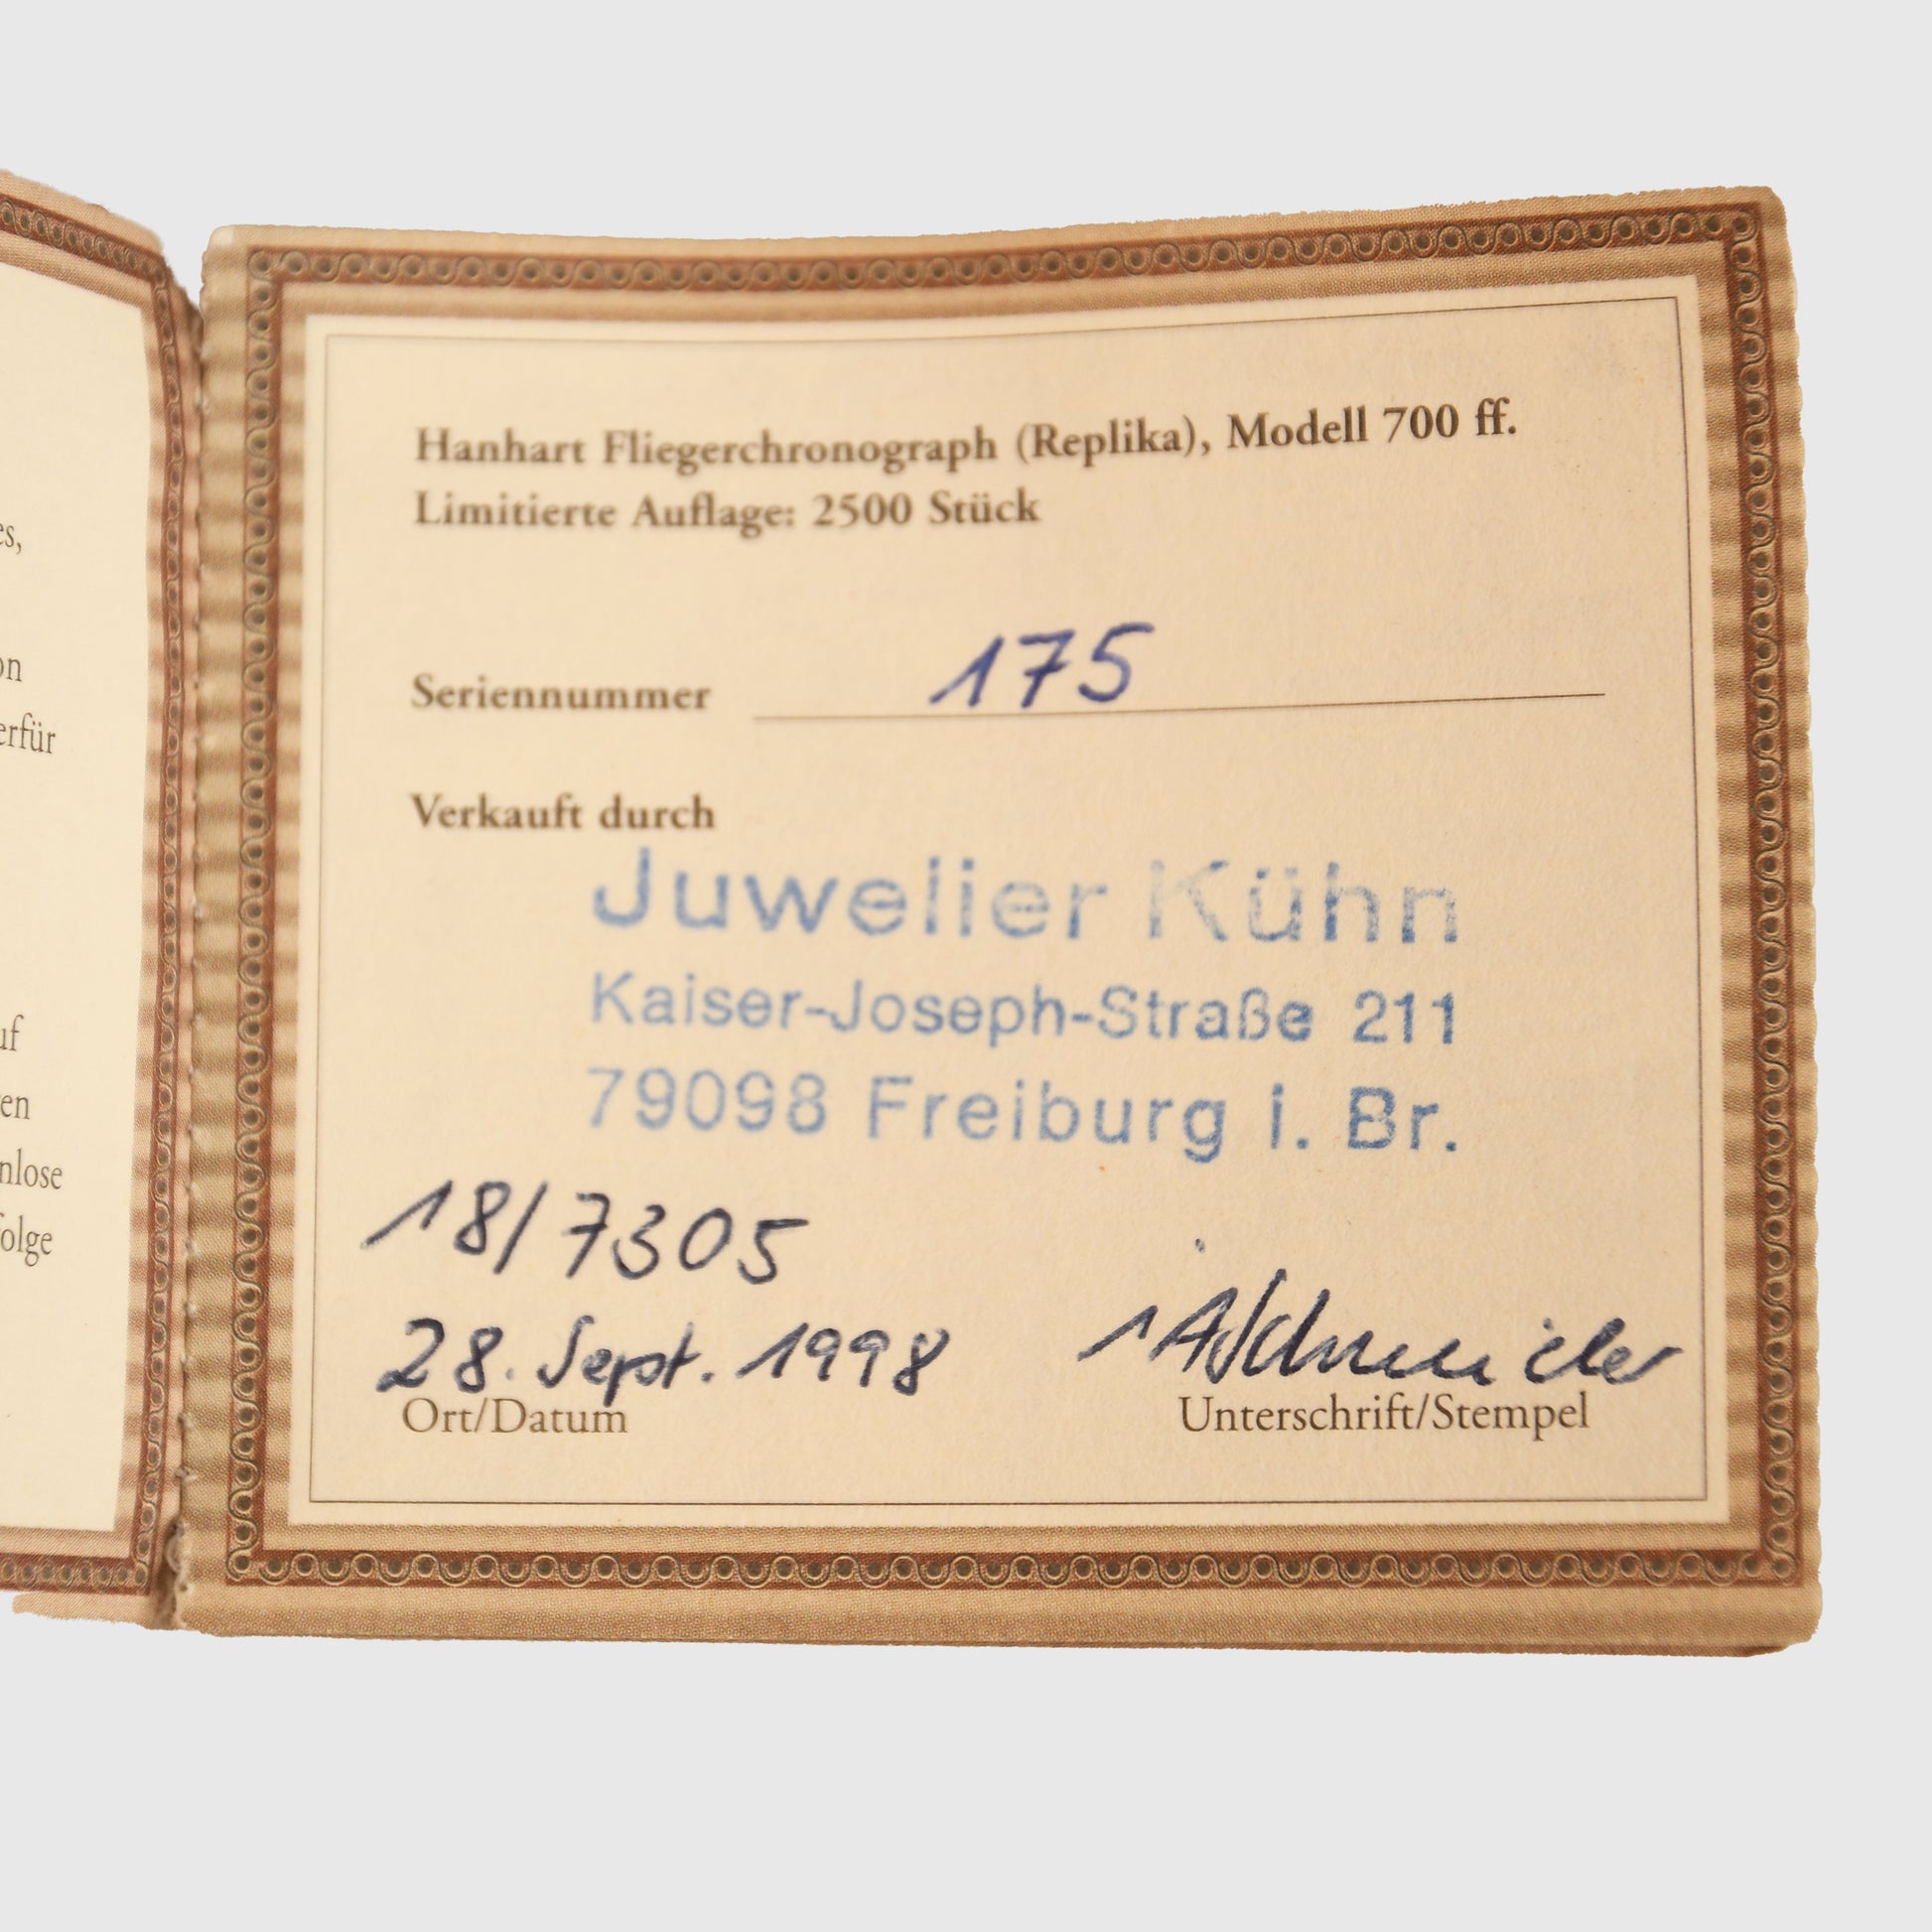 es,
on
erfür
uf
en
nlose
folge
Hanhart Fliegerchronograph (Replika), Modell 700 ff.
Limitierte Auflage: 2500 Stück
Seriennummer 175
Verkauft durch
Juwelier Kühn
Kaiser-Joseph-Straße 211
79098 Freiburg i. Br.
18/7305
28. Sept. 1998
Ort/Datum
Unterschrift/Stempel